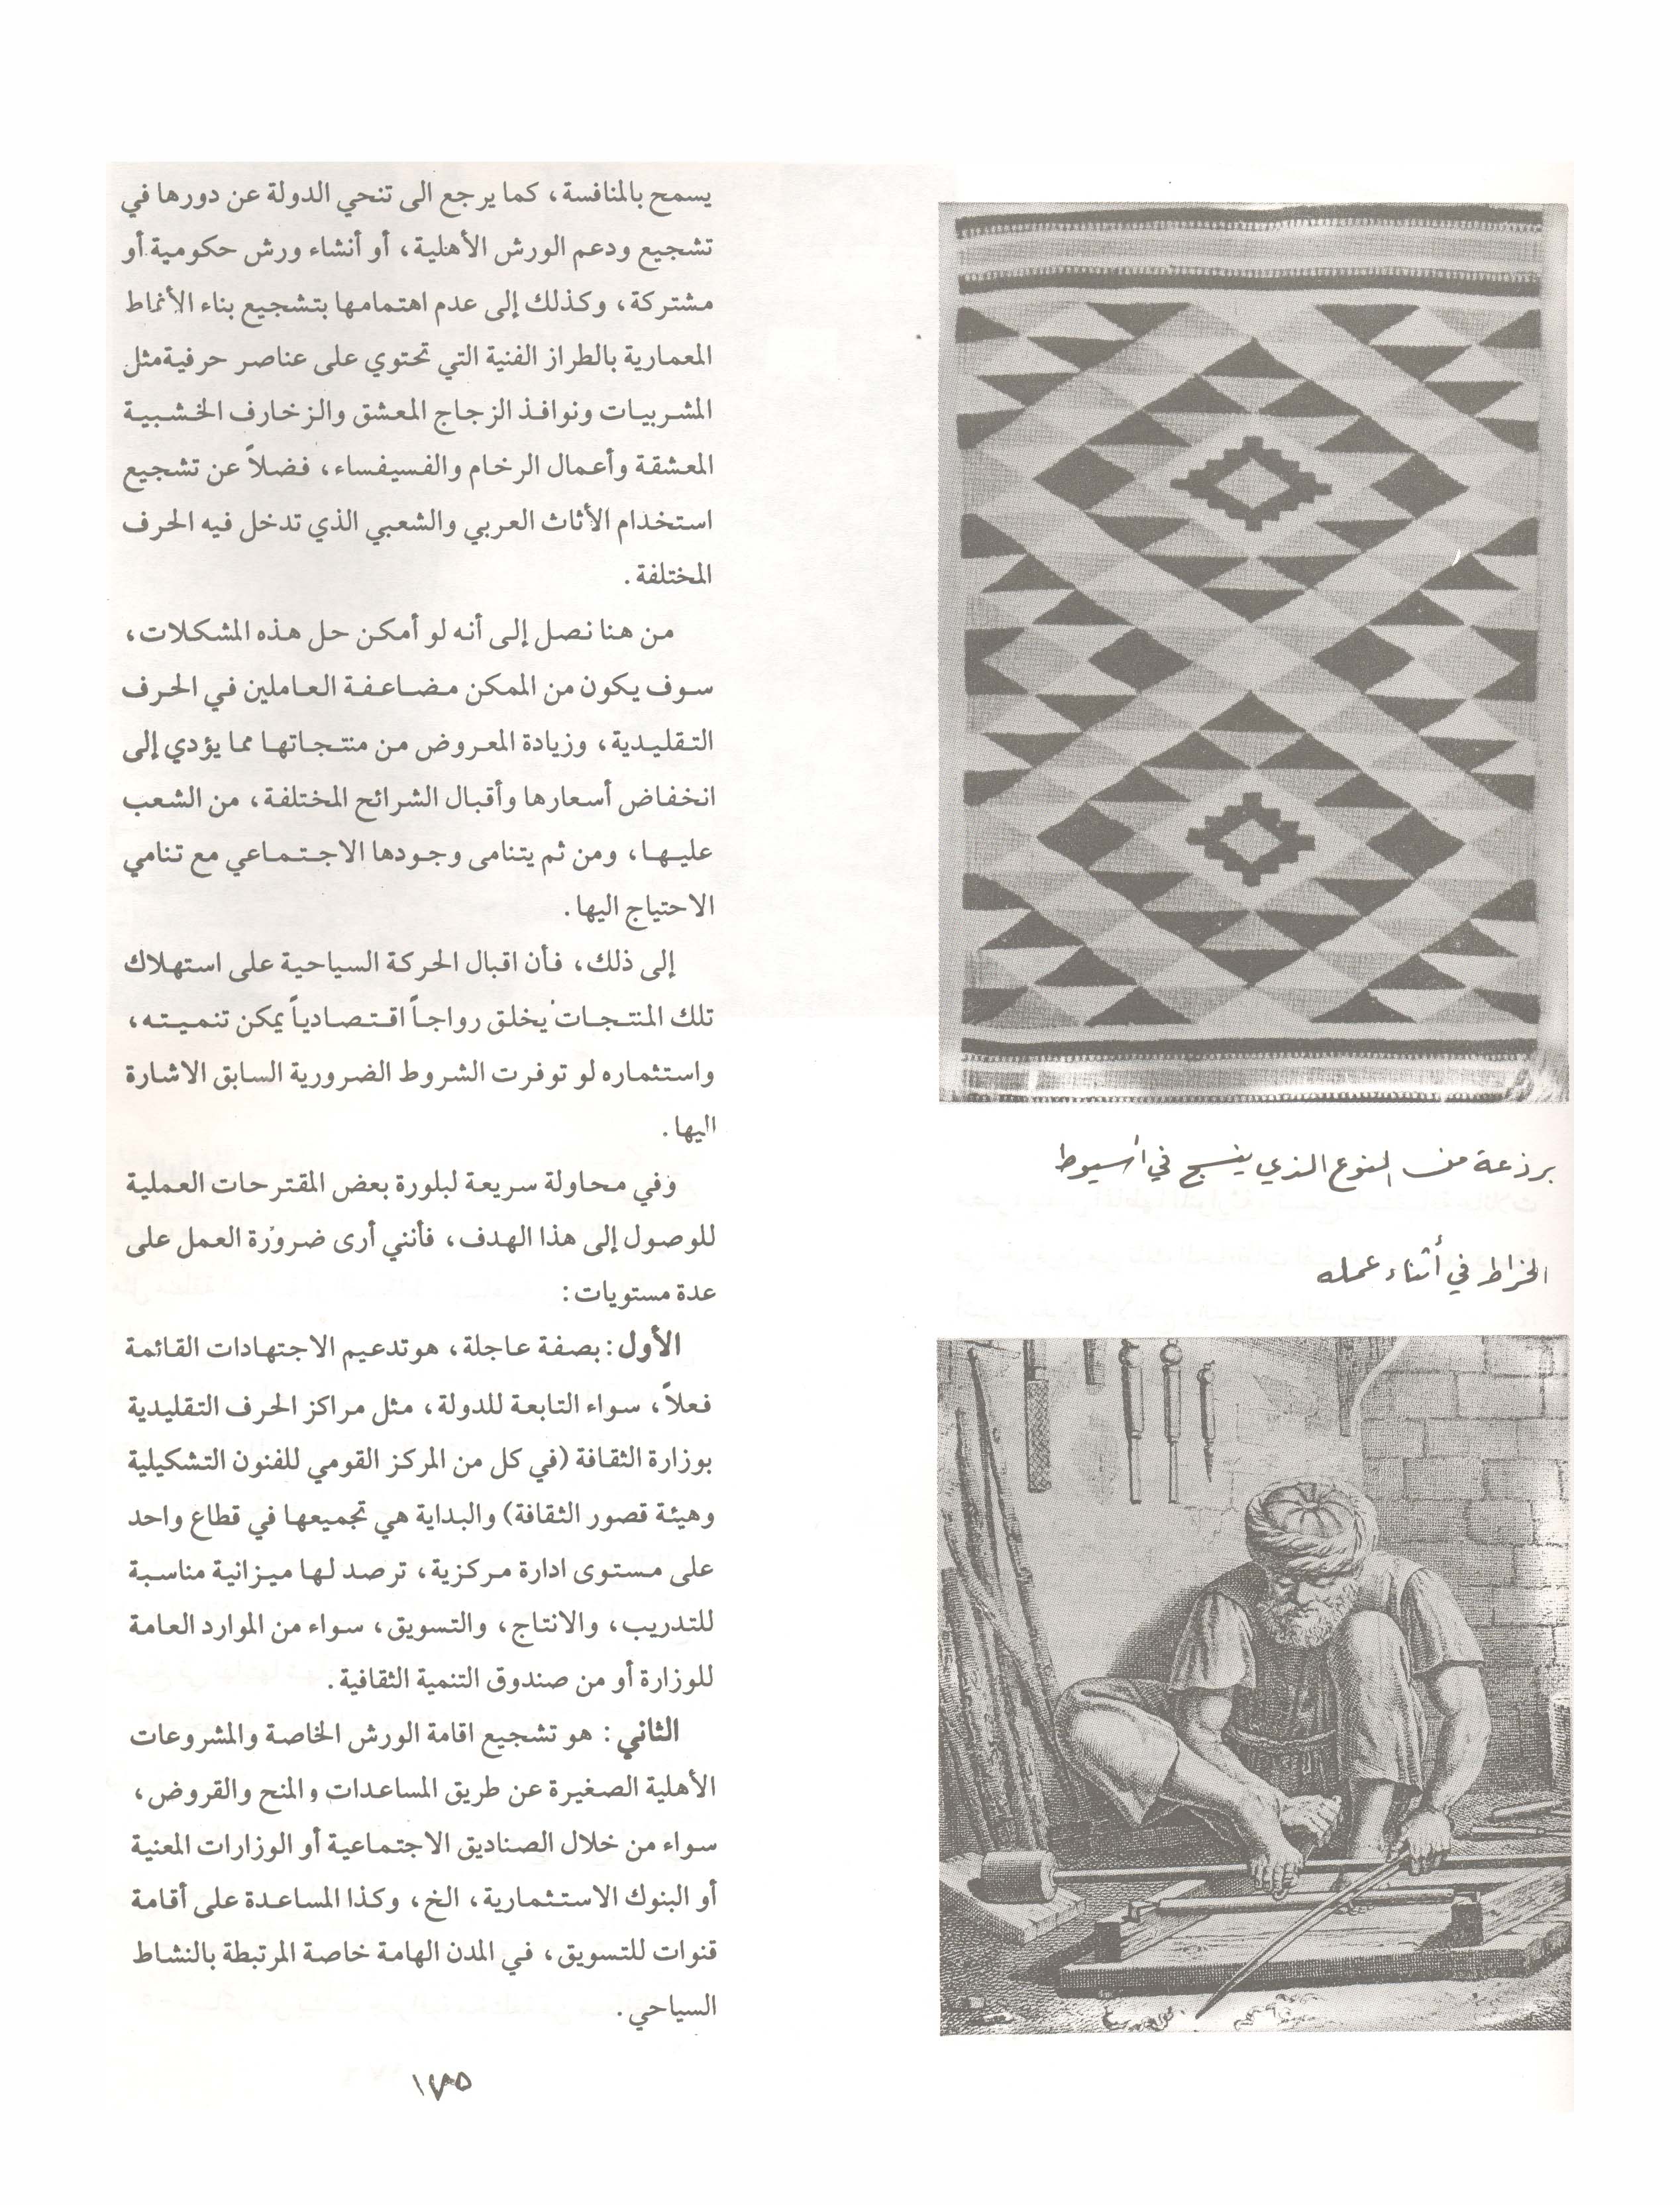 برذعة من النوع الذي ينسج في أسيوط
الخراط في أثناء عمله
يسمح بالمنافسة، كما يرجع الى تنحي الدولة عن دورها في
تشجيع ودعم الورش الأهلية، أو أنشاء ورش حكومية أو
مشتركة، وكذلك إلى عدم اهتمامها بتشجيع بناء الأنماط
المعمارية بالطراز الفنية التي تحتوي على عناصر حرفية مثل
المشربيات ونوافذ الزجاج المعشق والزخارف الخشبية
المعشقة وأعمال الرخام والفسيفساء، فضلاً عن تشجيع
استخدام الأثاث العربي والشعبي الذي تدخل فيه الحرف
المختلفة.
من هنا نصل إلى أنه لو أمكن حل هذه المشكلات،
سوف يكون من الممكن مضاعفة العاملين في الحرف
التقليدية، وزيادة المعروض من منتجاتها مما يؤدي إلى
انخفاض أسعارها وأقبال الشرائح المختلفة، من الشعب
عليها، ومن ثم يتنامى وجودها الاجتماعي مع تنامي
الاحتياج اليها.
إلى ذلك، فأن اقبال الحركة السياحية على استهلاك
تلك المنتجات يخلق رواجاً اقتصادياً يمكن تنميته،
واستثماره لو توفرت الشروط الضرورية السابق الاشارة
اليها.
وفي محاولة سريعة لبلورة بعض المقترحات العملية
للوصول إلى هذا الهدف، فأنني أرى ضرورة العمل على
عدة مستويات:
الأول: بصفة عاجلة، هو تدعيم الاجتهادات القائمة
فعلاً، سواء التابعة للدولة، مثل مراكز الحرف التقليدية
بوزارة الثقافة (في كل من المركز القومي للفنون التشكيلية
وهيئة قصور الثقافة) والبداية هي تجميعها في قطاع واحد
على مستوى ادارة مركزية، ترصد لها ميزانية مناسبة
للتدريب، والانتاج، والتسويق، سواء من الموارد العامة
للوزارة أو من صندوق التنمية الثقافية.
الثاني: هو تشجيع اقامة الورش الخاصة والمشروعات
الأهلية الصغيرة عن طريق المساعدات والمنح والقروض،
سواء من خلال الصناديق الاجتماعية أو الوزارات المعنية
أو البنوك الاستثمارية، الخ، وكذا المساعدة على أقامة
قنوات للتسويق، في المدن الهامة خاصة المرتبطة بالنشاط
السياحي.